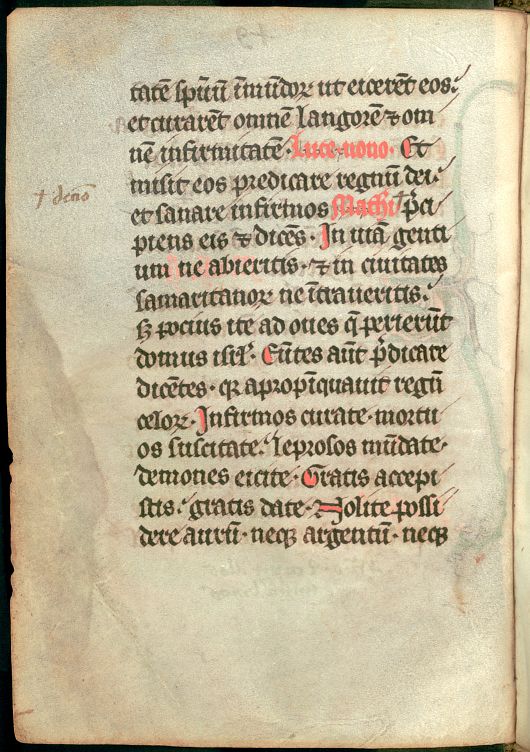 tatē sp̄uū īmūdoꝝ ut eicerēt eos.
et curarēt omnē langorē ⁊ om
nē infirmitatē. Luce nono. Et
misit eos predicare regnū dei.
† decimo
et sanare infirmos Mathi † p̄ci
piens eis ⁊ dicēs. In uiā genti
um ne abieritis. ⁊ in ciuitates
samaritanoꝝ ne ītraueritis.
sꝫ pocius ite ad oues q̄ perierūt
domus isrl̄. Eūtes aūt p̄dicate
dicētes. qꝛ apropīquauit regnū
celoꝝ. Infirmos curate. mortu
os suscitate. leprosos mūdate.
demones eicite. Gratis accepi
stis. gratis date. Nolite possi
dere aurū. neqꝫ argentū. neqꝫ